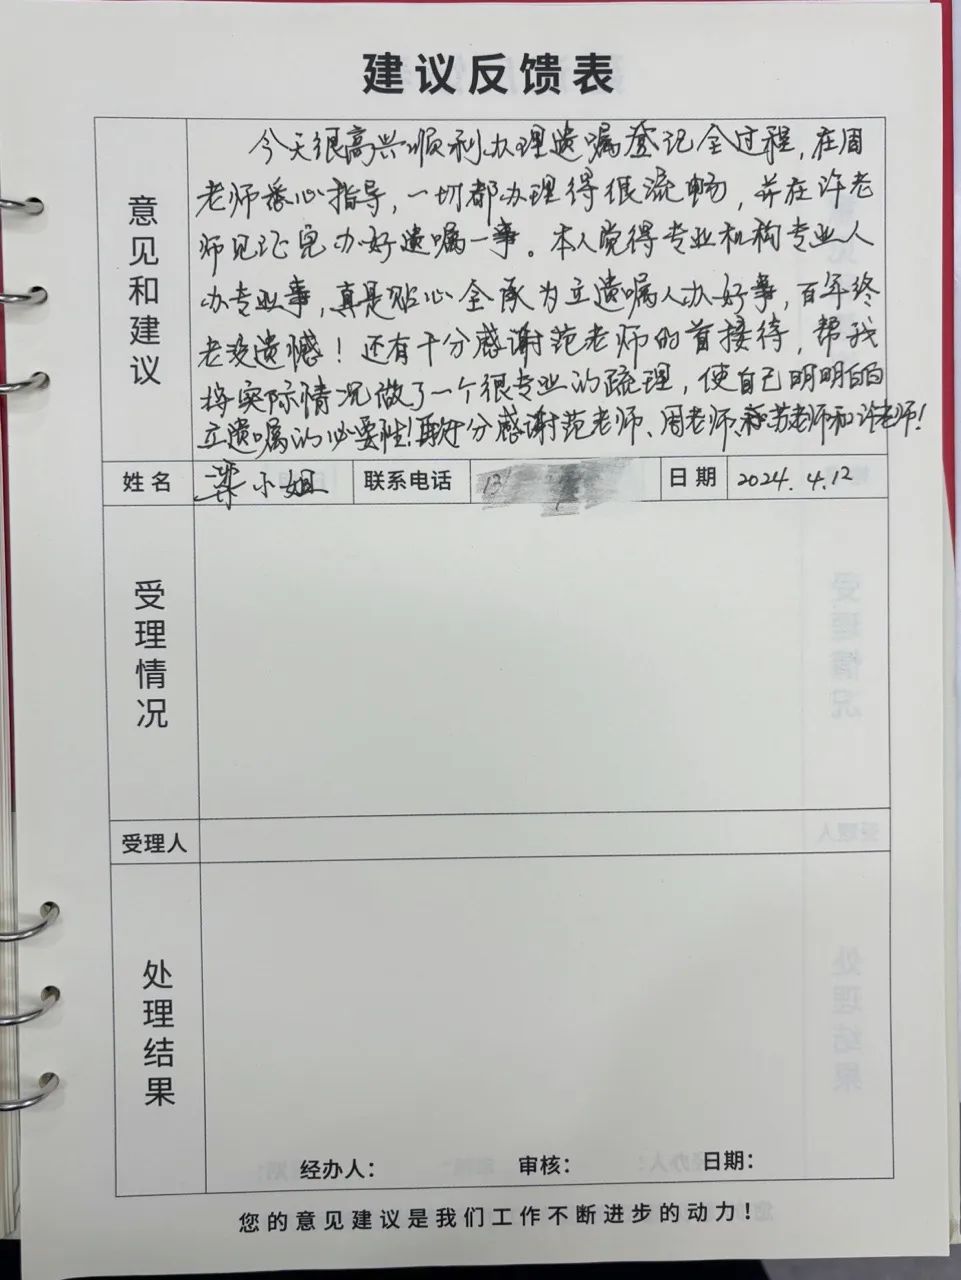 建议反馈表
意见和建议
今天很高兴顺利办理遗嘱登记全过程，在周
老师悉心指导，一切都办理得很流畅，并在许老
师见证完办好遗嘱一事。本人觉得专业机构专业人
办专业事，真是贴心全承为立遗嘱人办好事，百年终
老没遗憾！还有十分感谢范老师的首接待，帮我
将实际情况做了一个很专业的疏理，使自己明明白白
立遗嘱的必要性！再十分感谢范老师、周老师、苏老师和许老师！
姓名 梁小姐 联系电话 13 日期 2024.4.12
受理情况
受理人
处理结果
经办人： 审核： 日期：
您的意见建议是我们工作不断进步的动力！